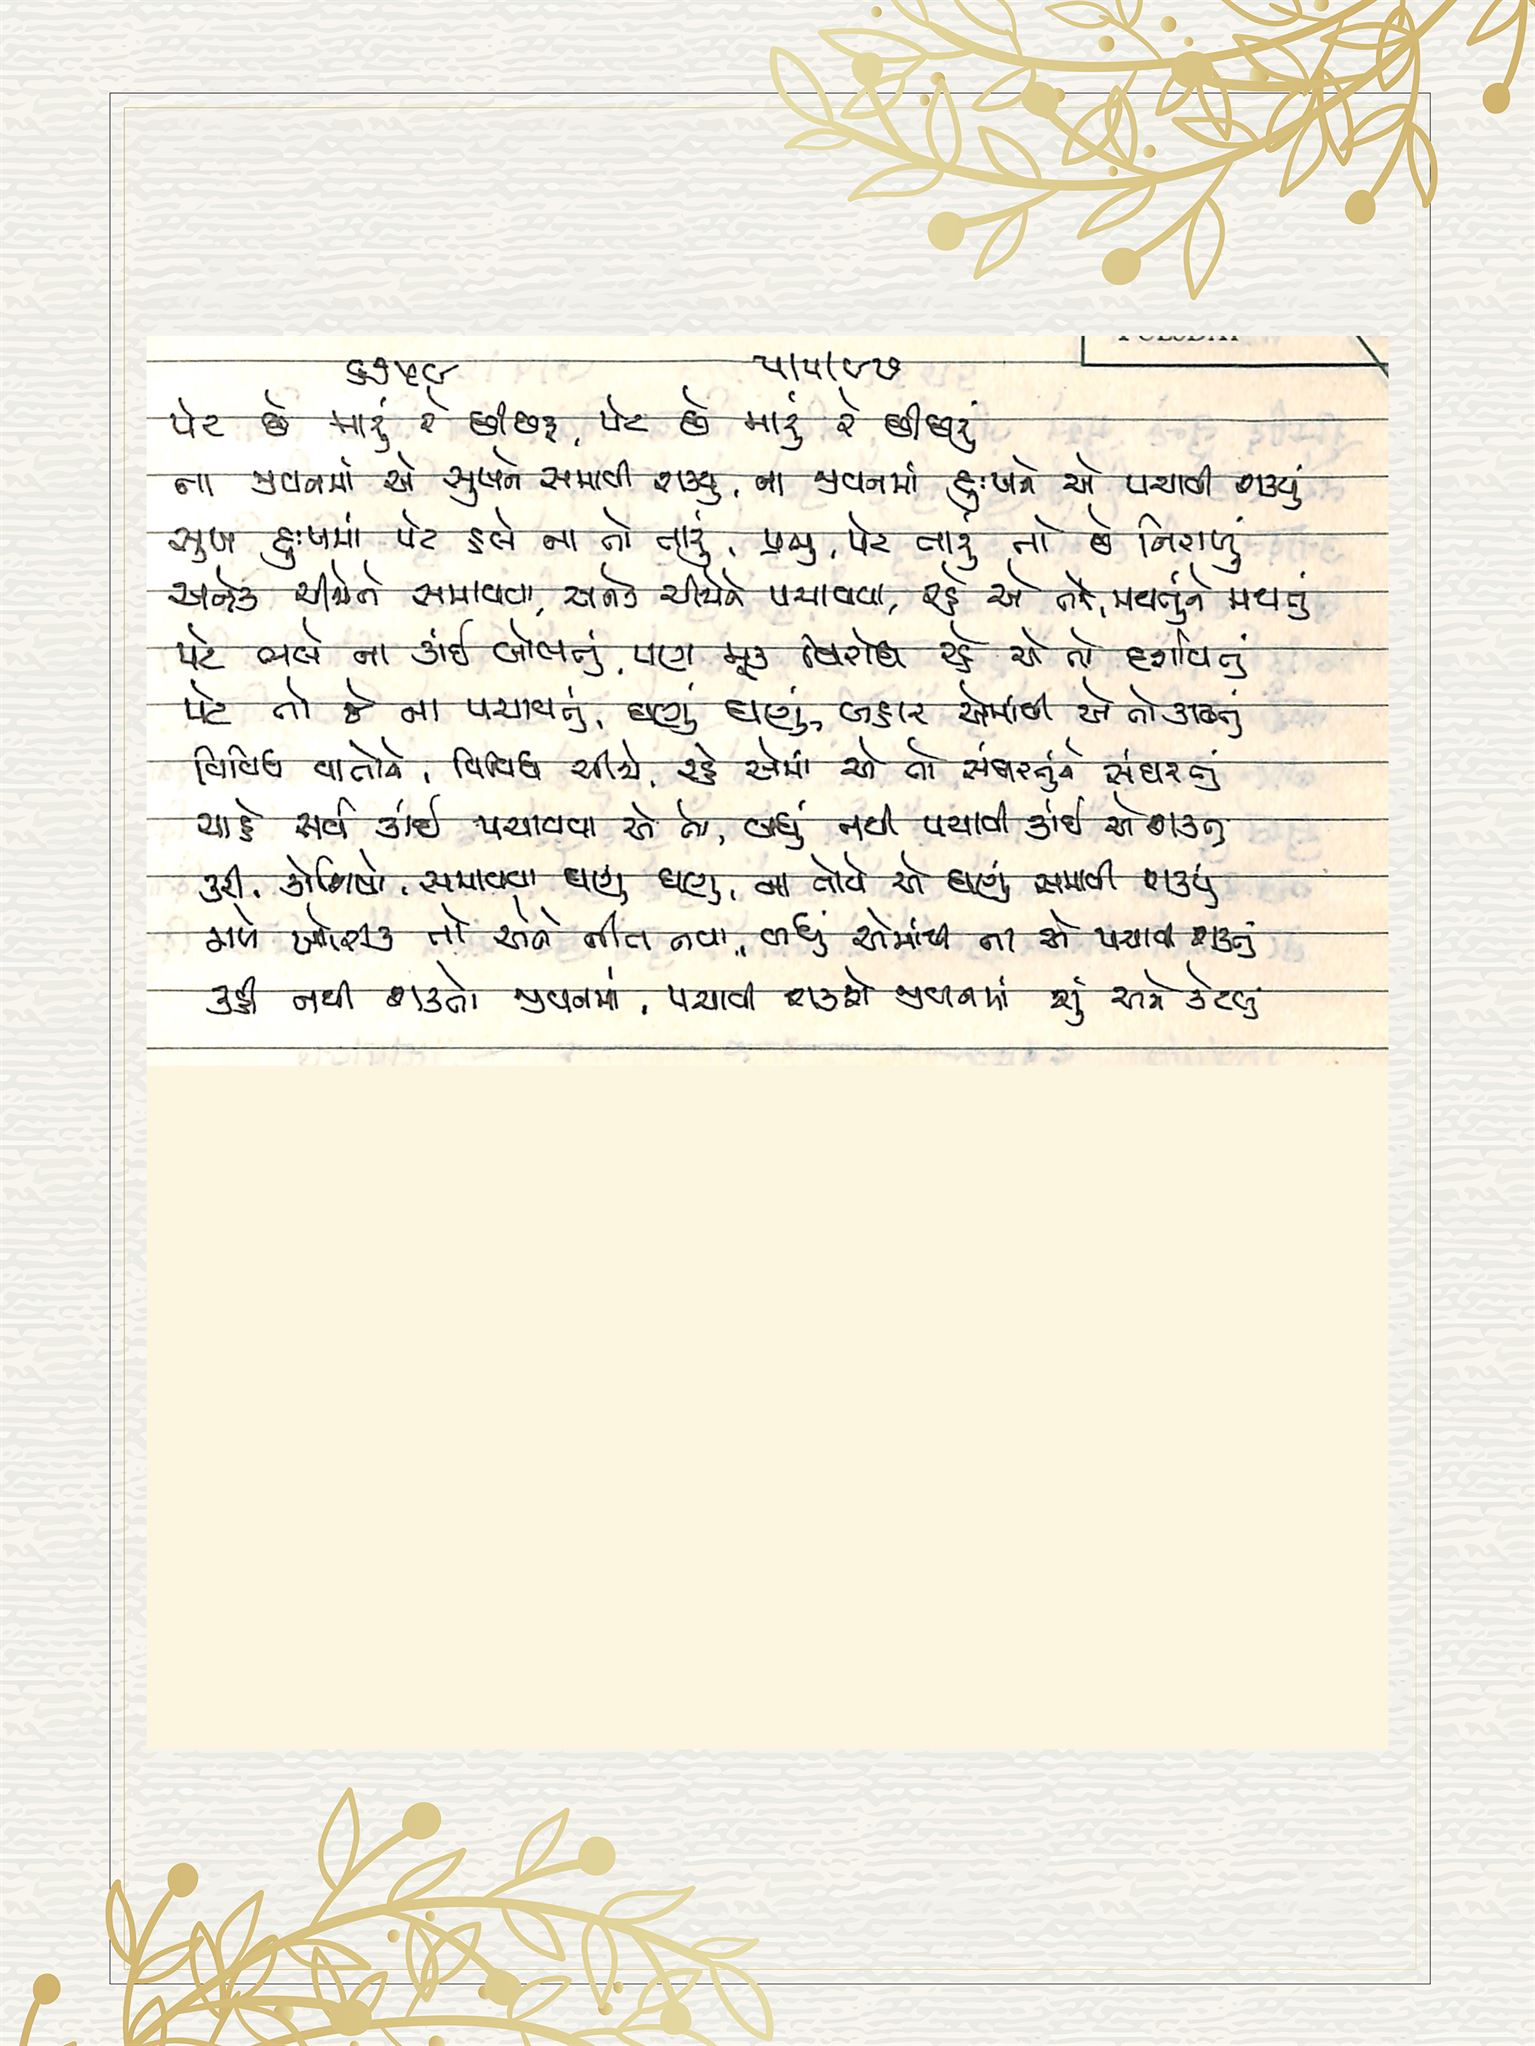 TUESDAY
૬૭૫૯ ૫।૫।૯૭
પેટ છે મારું રે છીછરૂં, પેટ છે મારું રે છીછરું
ના જીવનમાં એ સુખને સમાવી શક્યું, ના જીવનમાં દુઃખને એ પચાવી શક્યું
સુખ દુઃખમાં પેટ હલે ના તો તારું, પ્રભુ, પેટ તારું તો છે નિરાળું
અનેક ચીજોને સમાવવા, અનેક ચીજોને પચાવવા, રહે એ તો, મથતુંને મથતું
પેટ ભલે ના કાંઈ બોલતું, પણ મૂક વિરોધ રહે એ તો દર્શાવતું
પેટ તો જે ના પચાવતું, ઘણું ઘણું, બહાર એમાંથી એ તો કાઢતું
વિવિધ વાતોને, વિવિધ ચીજો, રહે એમાં એ તો સંઘરતુંને સંઘરતું
ચાહે સર્વ કાંઈ પચાવવા એ તો, બધું નથી પચાવી કાંઈ એ શકતુ
કરી, કોશિષો, સમાવવા ઘણુ ઘણુ, ના તોયે એ ઘણું સમાવી શક્યું
મળે ખોરાક તો એને નીત નવા, બધું એમાંથી ના એ પચાવી શકતું
કહી નથી શકતો જીવનમાં, પચાવી શકશે જીવનમાં શું અને કેટલું